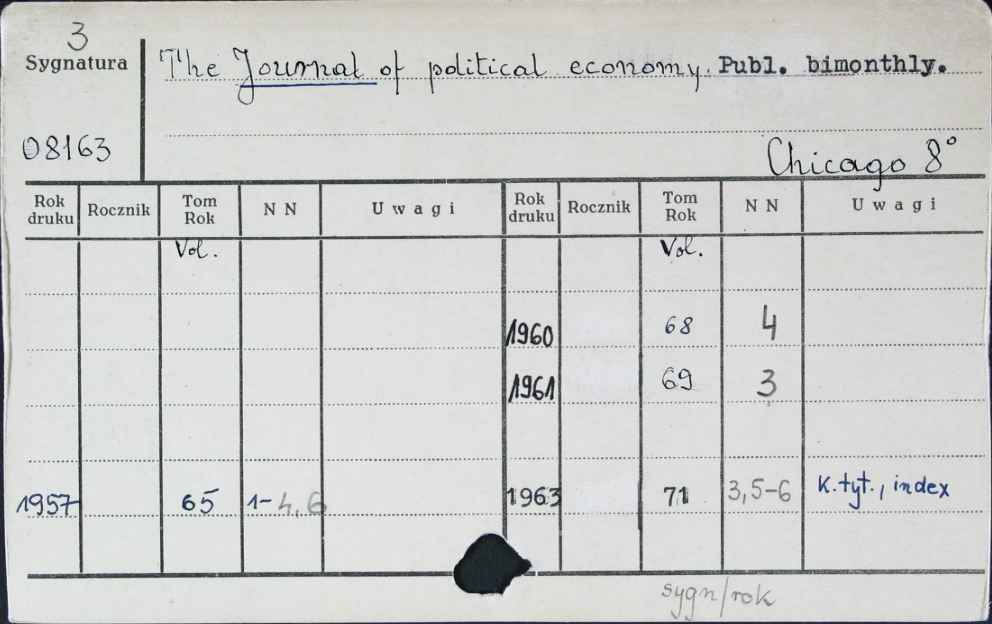 3
Sygnatura
The Journal of political economy. Publ. bimonthly.
08163
Chicago 8°
Rok druku Rocznik Tom Rok N N Uwagi Rok druku Rocznik Tom Rok N N Uwagi
Vol. Vol.
1960 68 4
1961 69 3
1957 65 1-4,6 1963 71 3,5-6 K.tyt., index
sygn/rok